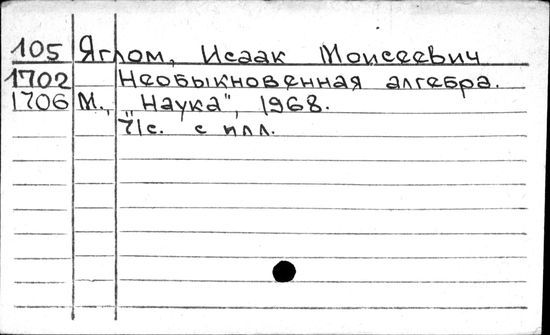 105 Яглом, Исаак Моисеевич
1702 Необыкновенная алгебра.
1706 М., "Наука", 1968.
71с. с илл.